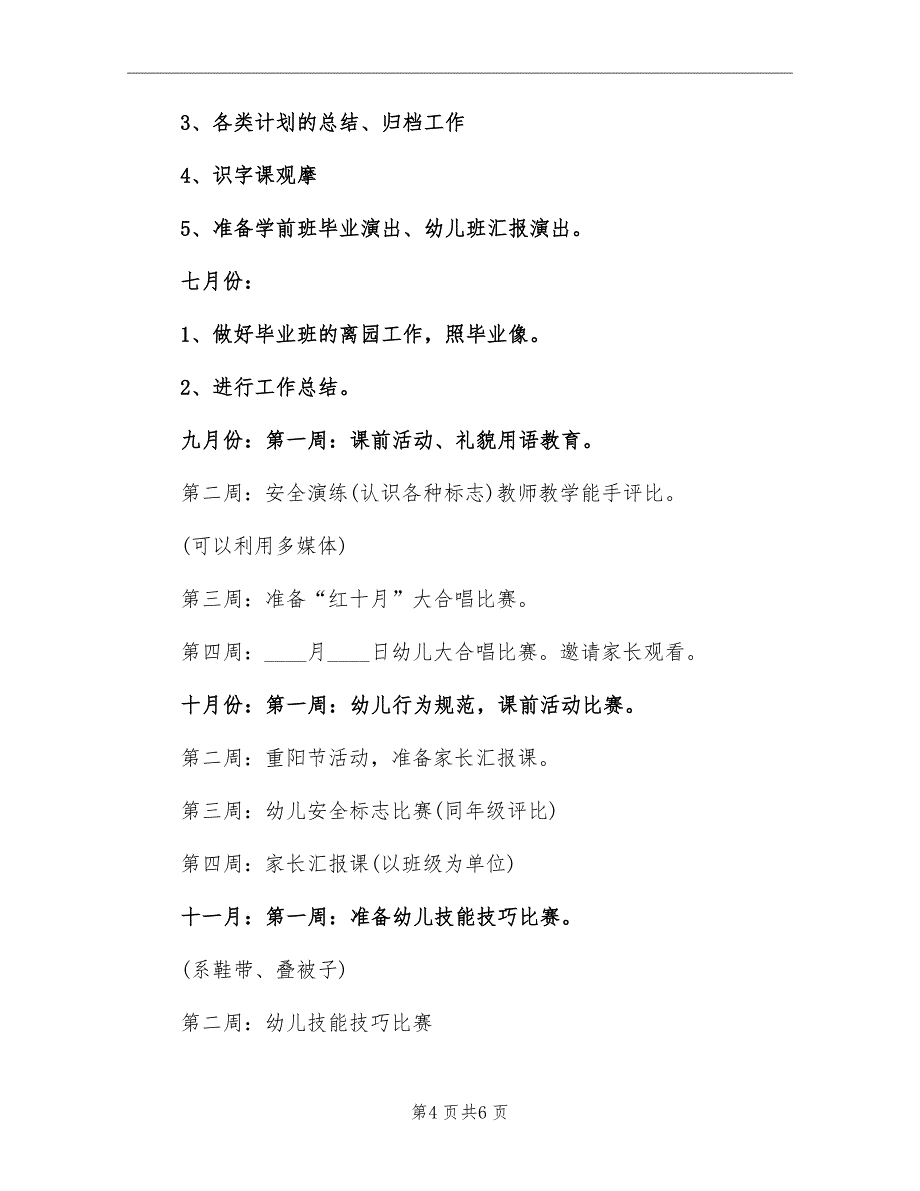 3、各类计划的总结、归档工作
4、识字课观摩
5、准备学前班毕业演出、幼儿班汇报演出。
七月份：
1、做好毕业班的离园工作，照毕业像。
2、进行工作总结。
九月份：第一周：课前活动、礼貌用语教育。
第二周：安全演练(认识各种标志)教师教学能手评比。
(可以利用多媒体)
第三周：准备“红十月”大合唱比赛。
第四周：____月____日幼儿大合唱比赛。邀请家长观看。
十月份：第一周：幼儿行为规范，课前活动比赛。
第二周：重阳节活动，准备家长汇报课。
第三周：幼儿安全标志比赛(同年级评比)
第四周：家长汇报课(以班级为单位)
十一月：第一周：准备幼儿技能技巧比赛。
(系鞋带、叠被子)
第二周：幼儿技能技巧比赛
第4 页共6 页